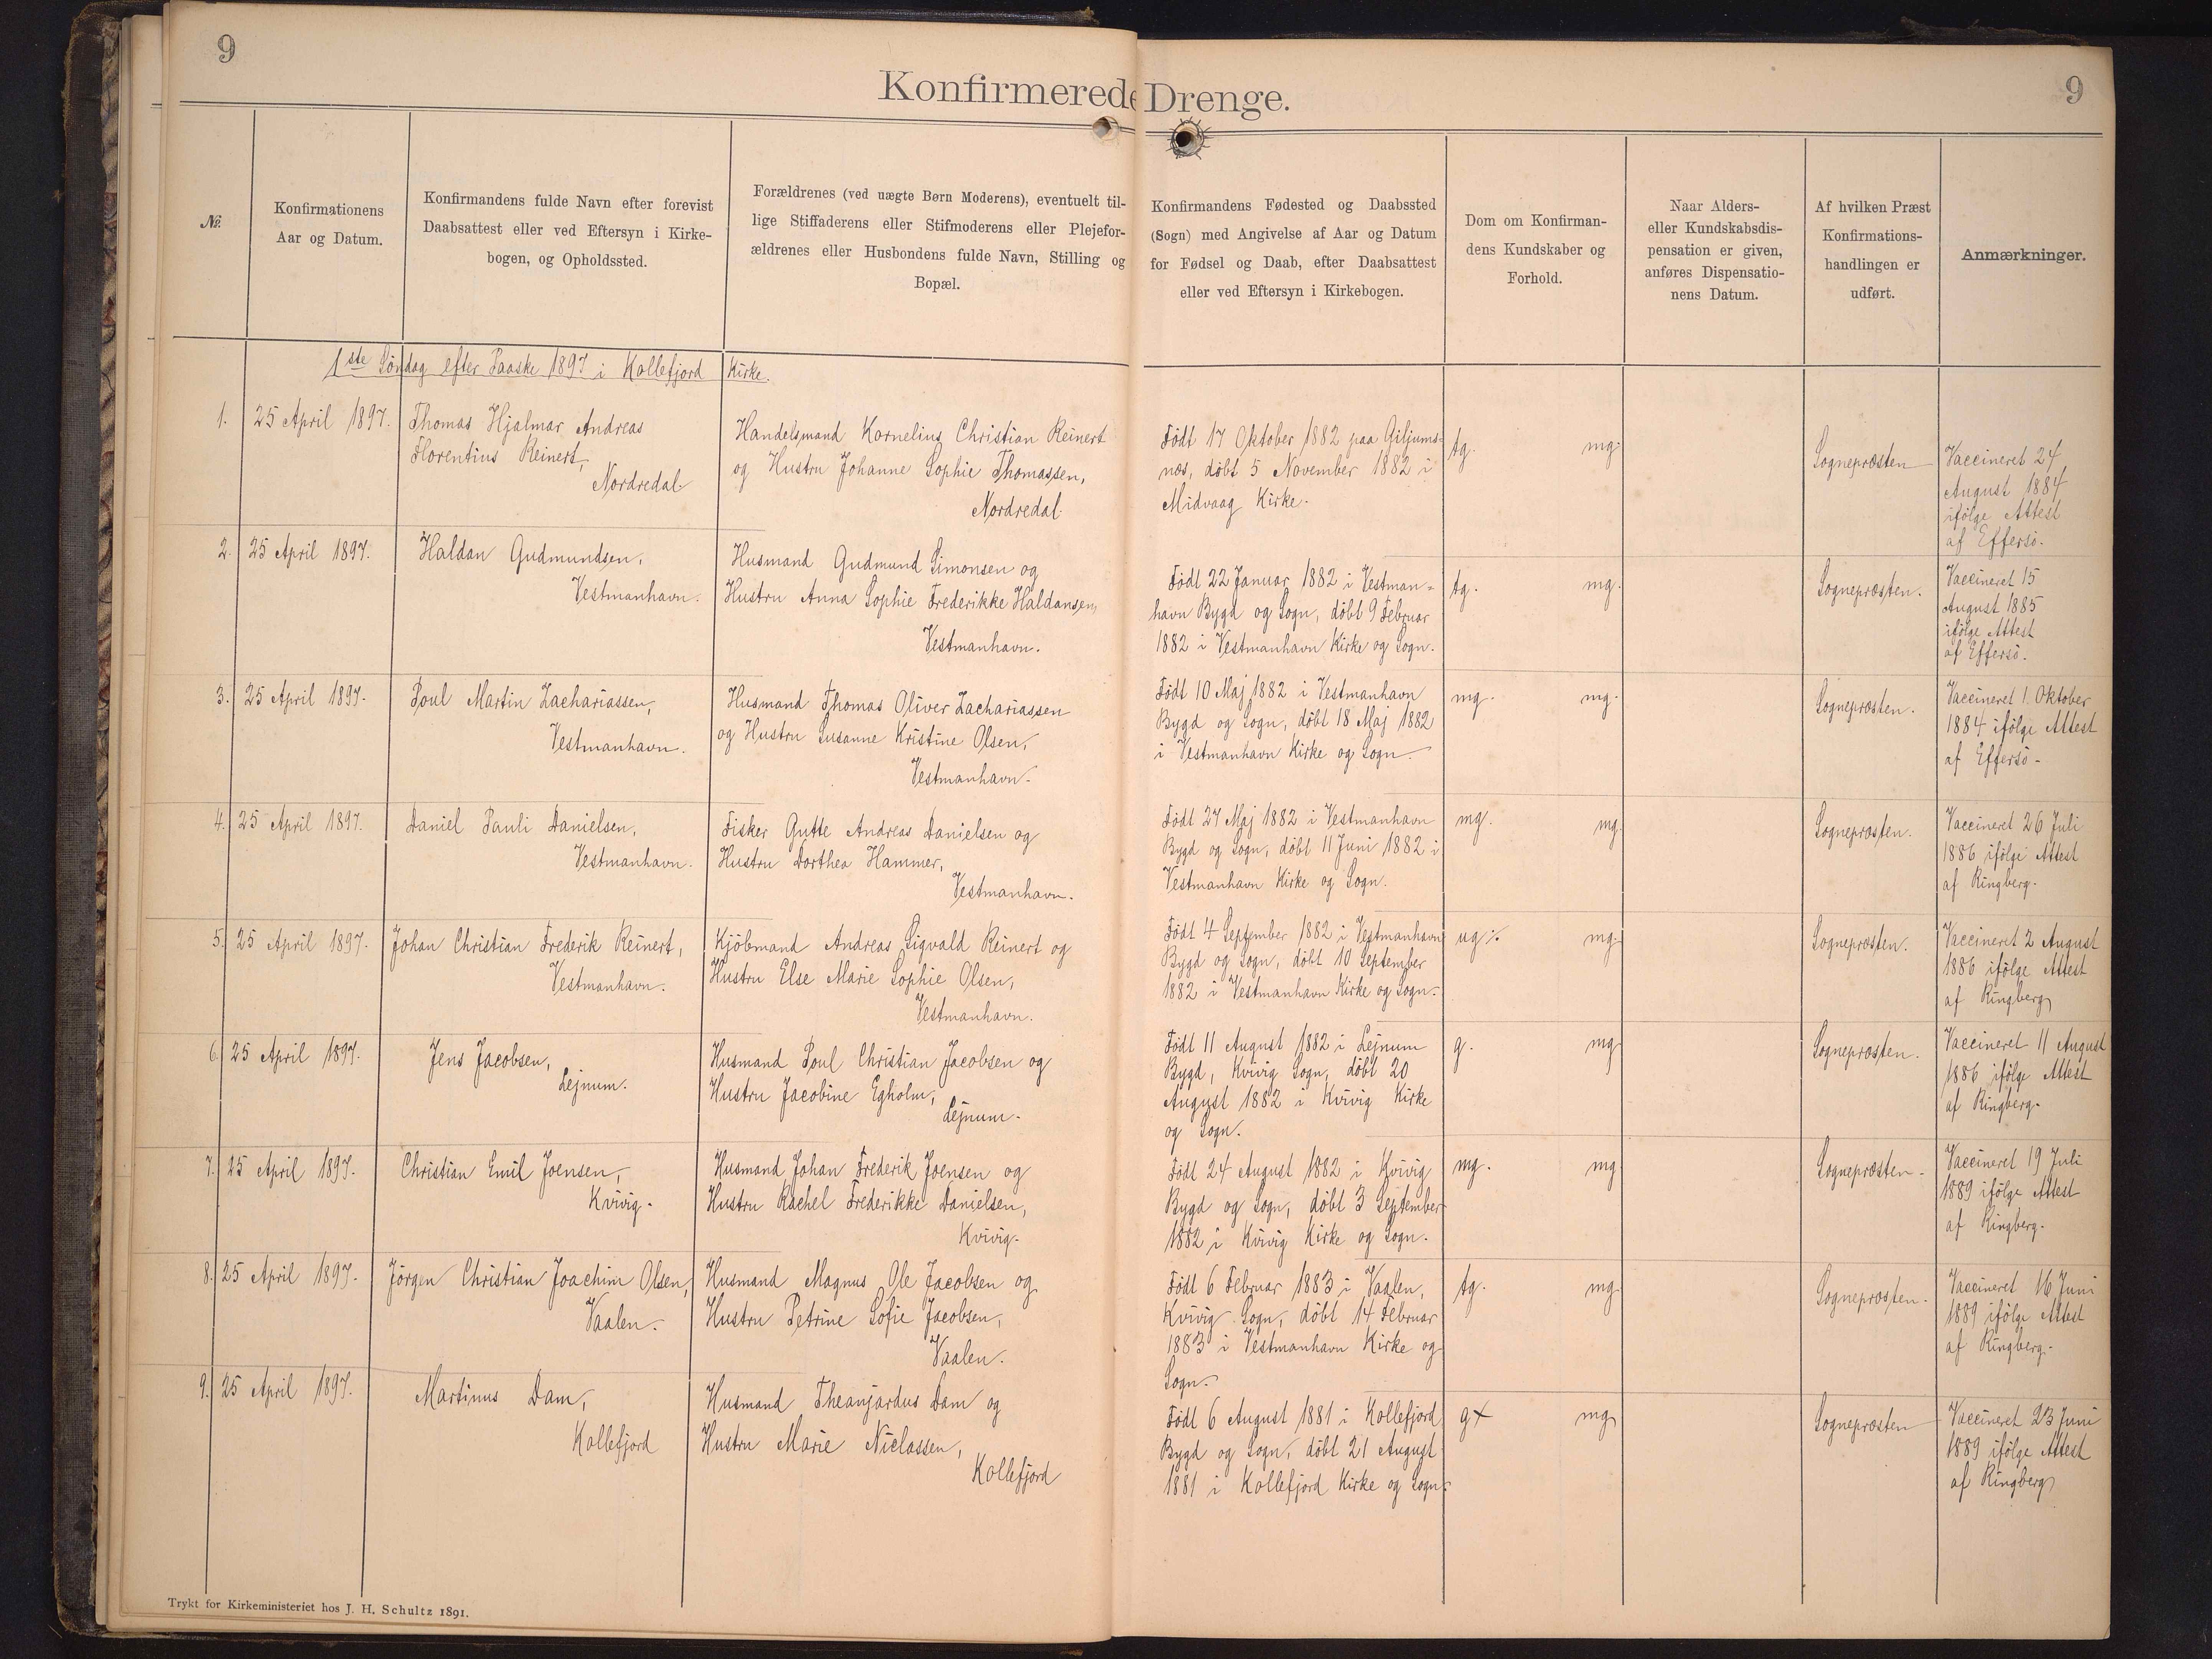 9
9
Konfirmerede Drenge.
№.
Konfirmationens
Aar og Datum.
Konfirmandens fulde Navn efter forevist
Daabsattest eller ved Eftersyn i Kirke-
bogen, og Opholdssted.
Forældrenes (ved uægte Børn Moderens), eventuelt til-
lige Stiffaderens eller Stifmoderens eller Plejefor-
ældrenes eller Husbondens fulde Navn, Stilling og
Bopæl.
Konfirmandens Fødested og Daabssted
(Sogn) med Angivelse af Aar og Datum
for Fødsel og Daab, efter Daabsattest
eller ved Eftersyn i Kirkebogen.
Dom om Konfirman-
dens Kundskaber og
Forhold.
Naar Alders-
eller Kundskabsdis-
pensation er given,
anføres Dispensatio-
nens Datum.
Af hvilken Præst
Konfirmations-
handlingen er
udført.
Anmærkninger.
1ste Söndag efter Paaske 1897 i Kollefjord Kirke.
1.
25 April 1897.
Thomas Hjalmar Andreas
Florentius Reinert,
Nordredal
Handelsmand Kornelius Christian Reinert
og Hustru Johanne Sophie Thomassen,
Nordredal.
Födt 17 Oktober 1882 paa Giljums-
næs, döbt 5 November 1882 i
Midvaag Kirke.
tg. mg.
Sognepræsten
Vaccineret 24
August 1884
ifölge Attest
af Effersö.
2.
25 April 1897.
Haldan Gudmundsen,
Vestmanhavn.
Husmand Gudmund Simonsen og
Hustru Anna Sophie Frederikke Haldansen,
Vestmanhavn.
Födt 22 Januar 1882 i Vestman=
havn Bygd og Sogn, döbt 9 Februar
1882 i Vestmanhavn Kirke og Sogn.
tg. mg.
Sognepræsten.
Vaccineret 15
August 1885
ifölge Attest
af Effersö.
3.
25 April 1897.
Poul Martin Zachariassen,
Vestmanhavn.
Husmand Thomas Oliver Zachariassen
og Hustru Susanne Kristine Olsen,
Vestmanhavn.
Födt 10 Maj 1882 i Vestmanhavn
Bygd og Sogn, döbt 18 Maj 1882
i Vestmanhavn Kirke og Sogn.
mg. mg.
Sognepræsten.
Vaccineret 1. Oktober
1884 ifölge Attest
af Effersö.
4.
25 April 1897.
Daniel Pauli Danielsen,
Vestmanhavn.
Fisker Gutte Andreas Danielsen og
Hustru Dorthea Hammer,
Vestmanhavn.
Födt 27 Maj 1882 i Vestmanhavn
Bygd og Sogn, döbt 11 Juni 1882 i
Vestmanhavn Kirke og Sogn.
mg. mg.
Sognepræsten.
Vaccineret 26 Juli
1886 ifölge Attest
af Ringberg.
5.
25 April 1897.
Johan Christian Frederik Reinert,
Vestmanhavn.
Kjöbmand Andreas Sigvald Reinert og
Hustru Else Marie Sophie Olsen,
Vestmanhavn.
Födt 4 September 1882 i Vestmanhavn
Bygd og Sogn, döbt 10 September
1882 i Vestmanhavn Kirke og Sogn.
ug ÷ mg.
Sognepræsten.
Vaccineret 2 August
1886 ifölge Attest
af Ringberg
6.
25 April 1897.
Jens Jacobsen,
Lejnum.
Husmand Poul Christian Jacobsen og
Hustru Jacobine Egholm,
Lejnum.
Födt 11 August 1882 i Lejnum
Bygd, Kvivig Sogn, döbt 20
August 1882 i Kvivig Kirke
og Sogn.
g. mg
Sognepræsten.
Vaccineret 11 August
1886 ifölge Attest
af Ringberg.
7.
25 April 1897.
Christian Emil Joensen,
Kvivig.
Husmand Johan Frederik Joensen og
Hustru Rachel Frederikke Danielsen,
Kvivig.
Födt 24 August 1882 i Kvivig
Bygd og Sogn, döbt 3 September
1882 i Kvivig Kirke og Sogn.
mg. mg
Sognepræsten.
Vaccineret 19 Juli
1889 ifölge Attest
af Ringberg.
8.
25 April 1897.
Jörgen Christian Joachim Olsen,
Vaalen.
Husmand Magnus Ole Jacobsen og
Hustru Petrine Sofie Jacobsen,
Vaalen.
Födt 6 Februar 1883 i Vaalen,
Kvivig Sogn, döbt 14 Februar
1883 i Vestmanhavn Kirke og
Sogn.
tg. mg
Sognepræsten.
Vaccineret 16 Juni
1889 ifölge Attest
af Ringberg.
9.
25 April 1897.
Martinus Dam,
Kollefjord
Husmand Theanjardus Dam og
Hustru Marie Niclassen,
Kollefjord
Födt 6 August 1881 i Kollefjord
Bygd og Sogn, döbt 21 August
1881 i Kollefjord Kirke og Sogn.
g+ mg
Sognepræsten
Vaccineret 23 Juni
1889 ifölge Attest
af Ringberg
Trykt for Kirkeministeriet hos J. H. Schultz 1891.